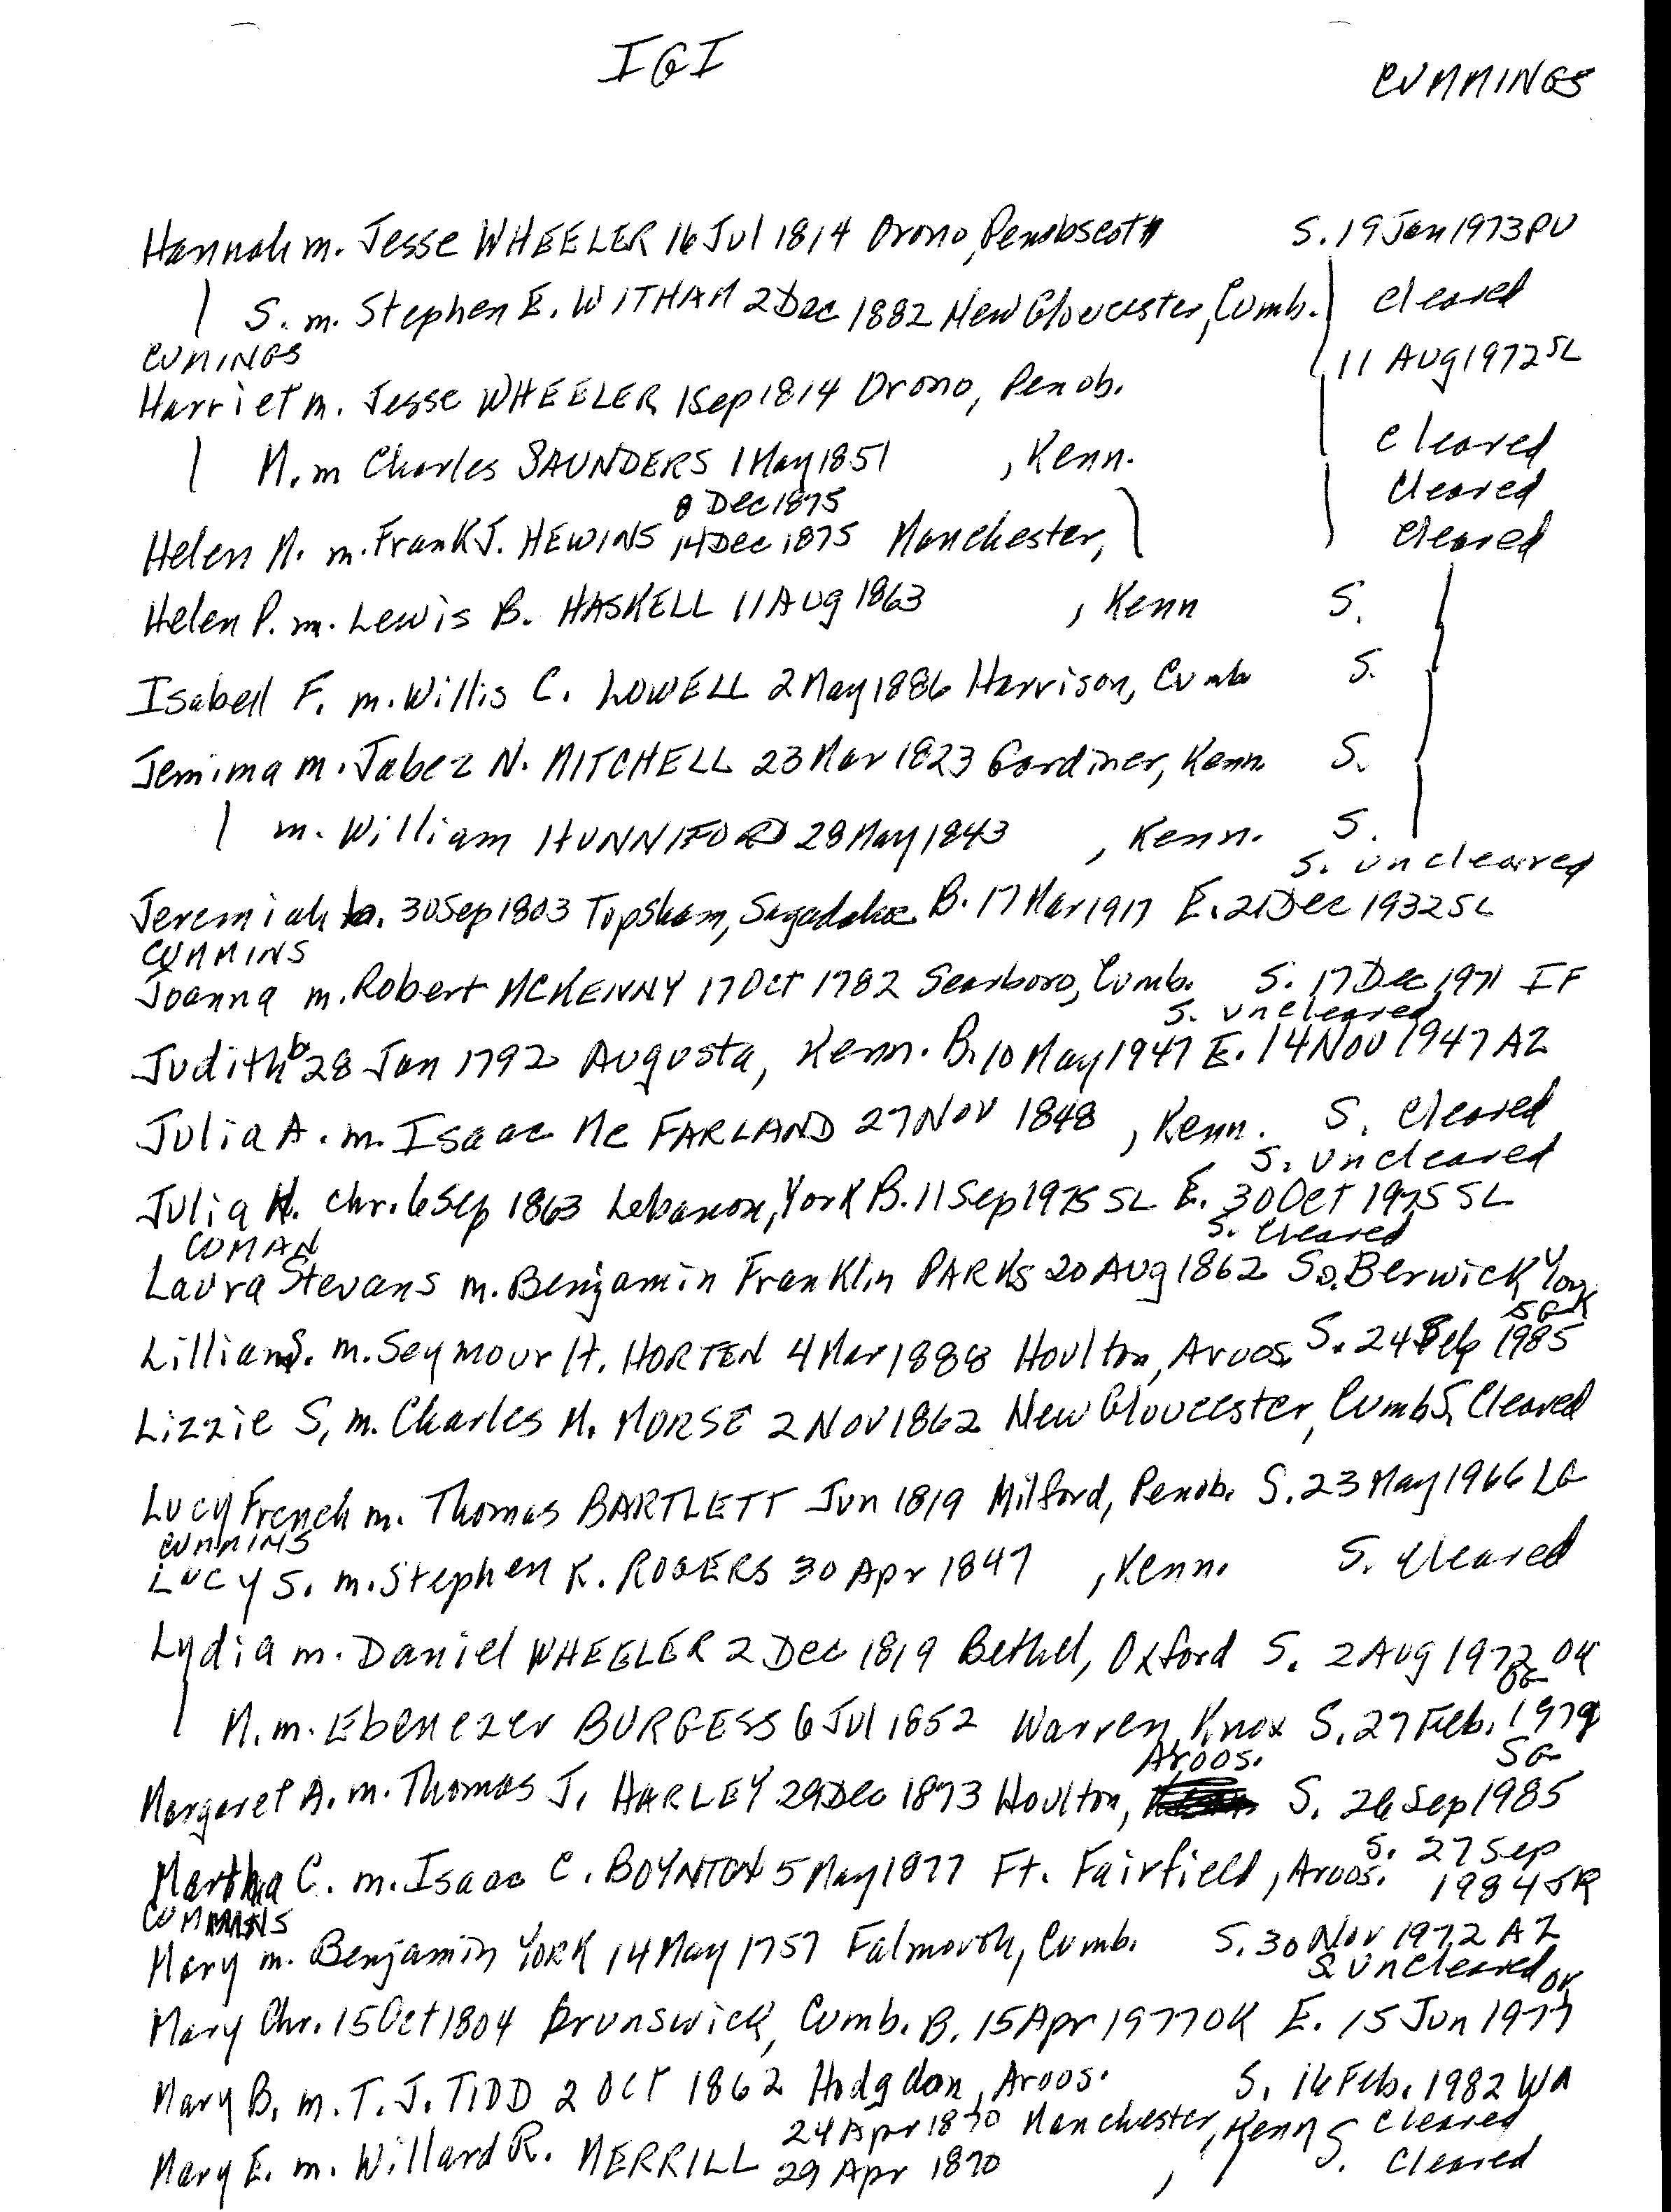 IGI
CUMMINGS
Hannah m. Jesse WHEELER 16 Jul 1814 Orono, Penobscot S. 19 Jan 1973 PV
S. m. Stephen E. WITHAM 2 Dec 1882 New Gloucester, Cumb. Cleared
CUMINGS
11 Aug 1972 SL
Harriet m. Jesse WHEELER 1 Sep 1814 Orono, Penob.
M. m Charles SAUNDERS 1 May 1851 , Kenn. Cleared
8 Dec 1875 Cleared
Helen M. m. Frank J. HEWINS 14 Dec 1875 Manchester, Cleared
Helen P. m. Lewis B. HASKELL 11 Aug 1863 , Kenn S.
Isabell F. m. Willis C. LOWELL 2 May 1886 Harrison, Cumb S.
Jemima m. Jabez N. MITCHELL 23 Mar 1823 Gardiner, Kenn. S.
m. William HUNNIFORD 28 May 1843 , Kenn. S.
S. uncleared
Jeremiah b. 30 Sep 1803 Topsham, Sagadahoc B. 17 Mar 1917 E. 21 Dec 1932 SL
CUMMINS
Joanna m. Robert MCKENNY 17 Oct 1782 Scarboro, Cumb. S. 17 Dec 1971 IF
S. uncleared
Judith b 28 Jan 1792 Augusta, Kenn. B. 10 May 1947 E. 14 Nov 1947 AZ
Julia A. m. Isaac Mc FARLAND 27 Nov 1848 , Kenn. S. Cleared
S. uncleared
Julia H. chr. 6 Sep 1863 Lebanon, York B. 11 Sep 1975 SL E. 30 Oct 1975 SL
COMAN S. Cleared
Laura Stevans m. Benjamin Franklin PARKS 20 Aug 1862 So. Berwick York
SG
Lillian S. m. Seymour H. HORTEN 4 Mar 1888 Houlton, Aroos. S. 24 Feb 1985
Lizzie S, m. Charles M. MORSE 2 Nov 1862 New Gloucester, Cumb S. Cleared
Lucy French m. Thomas BARTLETT Jun 1819 Milford, Penob. S. 23 May 1966 LG
CUMMINS
LUCY S. m. Stephen K. ROGERS 30 Apr 1847 , Kenn. S. Cleared
Lydia m. Daniel WHEELER 2 Dec 1819 Bethel, Oxford S. 2 Aug 1972 OK
OG
M. m. Ebenezer BURGESS 6 Jul 1852 Warren, Knox S. 27 Feb. 1979
Aroos. SG
Margaret A. m. Thomas J. HARLEY 29 Dec 1873 Houlton, S. 26 Sep 1985
S. 27 Sep
Martha C. m. Isaac C. BOYNTON 5 May 1877 Ft. Fairfield, Aroos. 1984 JR
CUMMINS
Mary m. Benjamin YORK 14 May 1757 Falmouth, Cumb. S. 30 Nov 1972 AZ
S uncleared OK
Mary Chr. 15 Oct 1804 Brunswick, Cumb. B. 15 Apr 1977 OK E. 15 Jun 1977
Mary B. m. T. J. TIDD 2 Oct 1862 Hodgdon, Aroos. S. 16 Feb. 1982 WA
24 Apr 1870 Manchester, Kenn S Cleared
Mary E. m. Willard R. MERRILL 29 Apr 1870 , S. Cleared